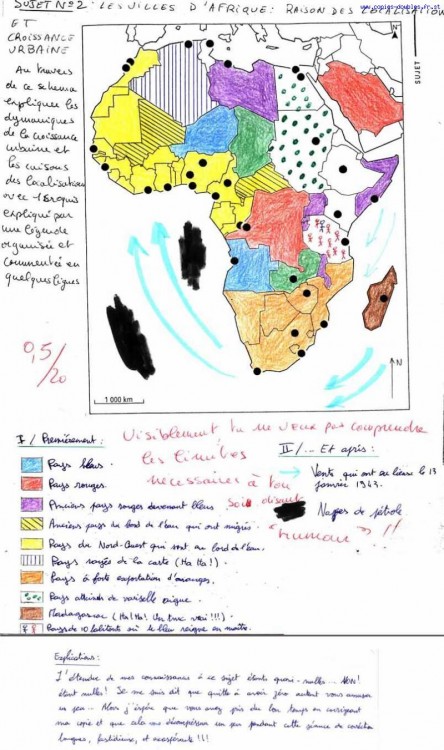 SUJET N°2 : LES VILLES D'AFRIQUE : RAISON DES LOCALISATIONS
www.copies-doubles.fr.st
ET
CROISSANCE
URBAINE
SUJET
N
Au travers
de ce schema
expliquer les
dynamiques
de la croissance
urbaine et
les raisons
des localisations
expliqué par
une légende
organisée et
commentée en
quelques lignes
0,5/20
1 000 km
N
I / Premièrement :
Visiblement tu ne veux pas comprendre
les limites
nécessaires à ton
soi disant
"humour" !!
Pays bleus.
Pays rouges.
Anciens pays rouges devenant bleus.
Anciens pays du bord de l'eau qui ont migrés.
Pays du Nord-Ouest qui sont au bord de l'eau.
Pays rayés de la carte (Ha Ha !).
Pays à forte exportation d'oranges.
Pays atteints de varicelle aigue.
Madagascar (Ha ! Ha ! Un truc vrai !!!).
Pays de 10 habitants où le bleu règne en maître.
II / ... Et après :
Vents qui ont eu lieu le 13
janvier 1943.
Nappes de pétrole
Explications :
L'étendue de mes connaissances à ce sujet étants quasi-nulles... NON !
étant nulles ! Je me suis dit que quitte à avoir zéro autant vous amuser
un peu... Alors j'espère que vous avez pris du bon temps en corrigeant
ma copie et que cela vous décompressera un peu pendant cette séance de correction
longues, fastidieuse, et exaspérante !!!